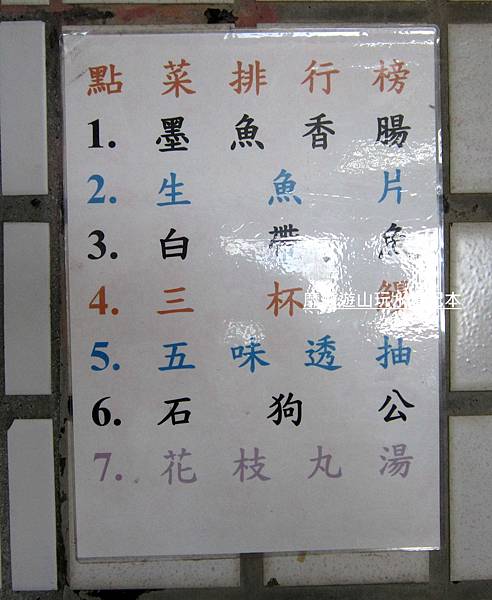 點菜排行榜
1. 墨魚香腸
2. 生魚片
3. 白帶魚
4. 三杯
5. 五味透抽
6. 石狗公
7. 花枝丸湯
遊山玩水
本